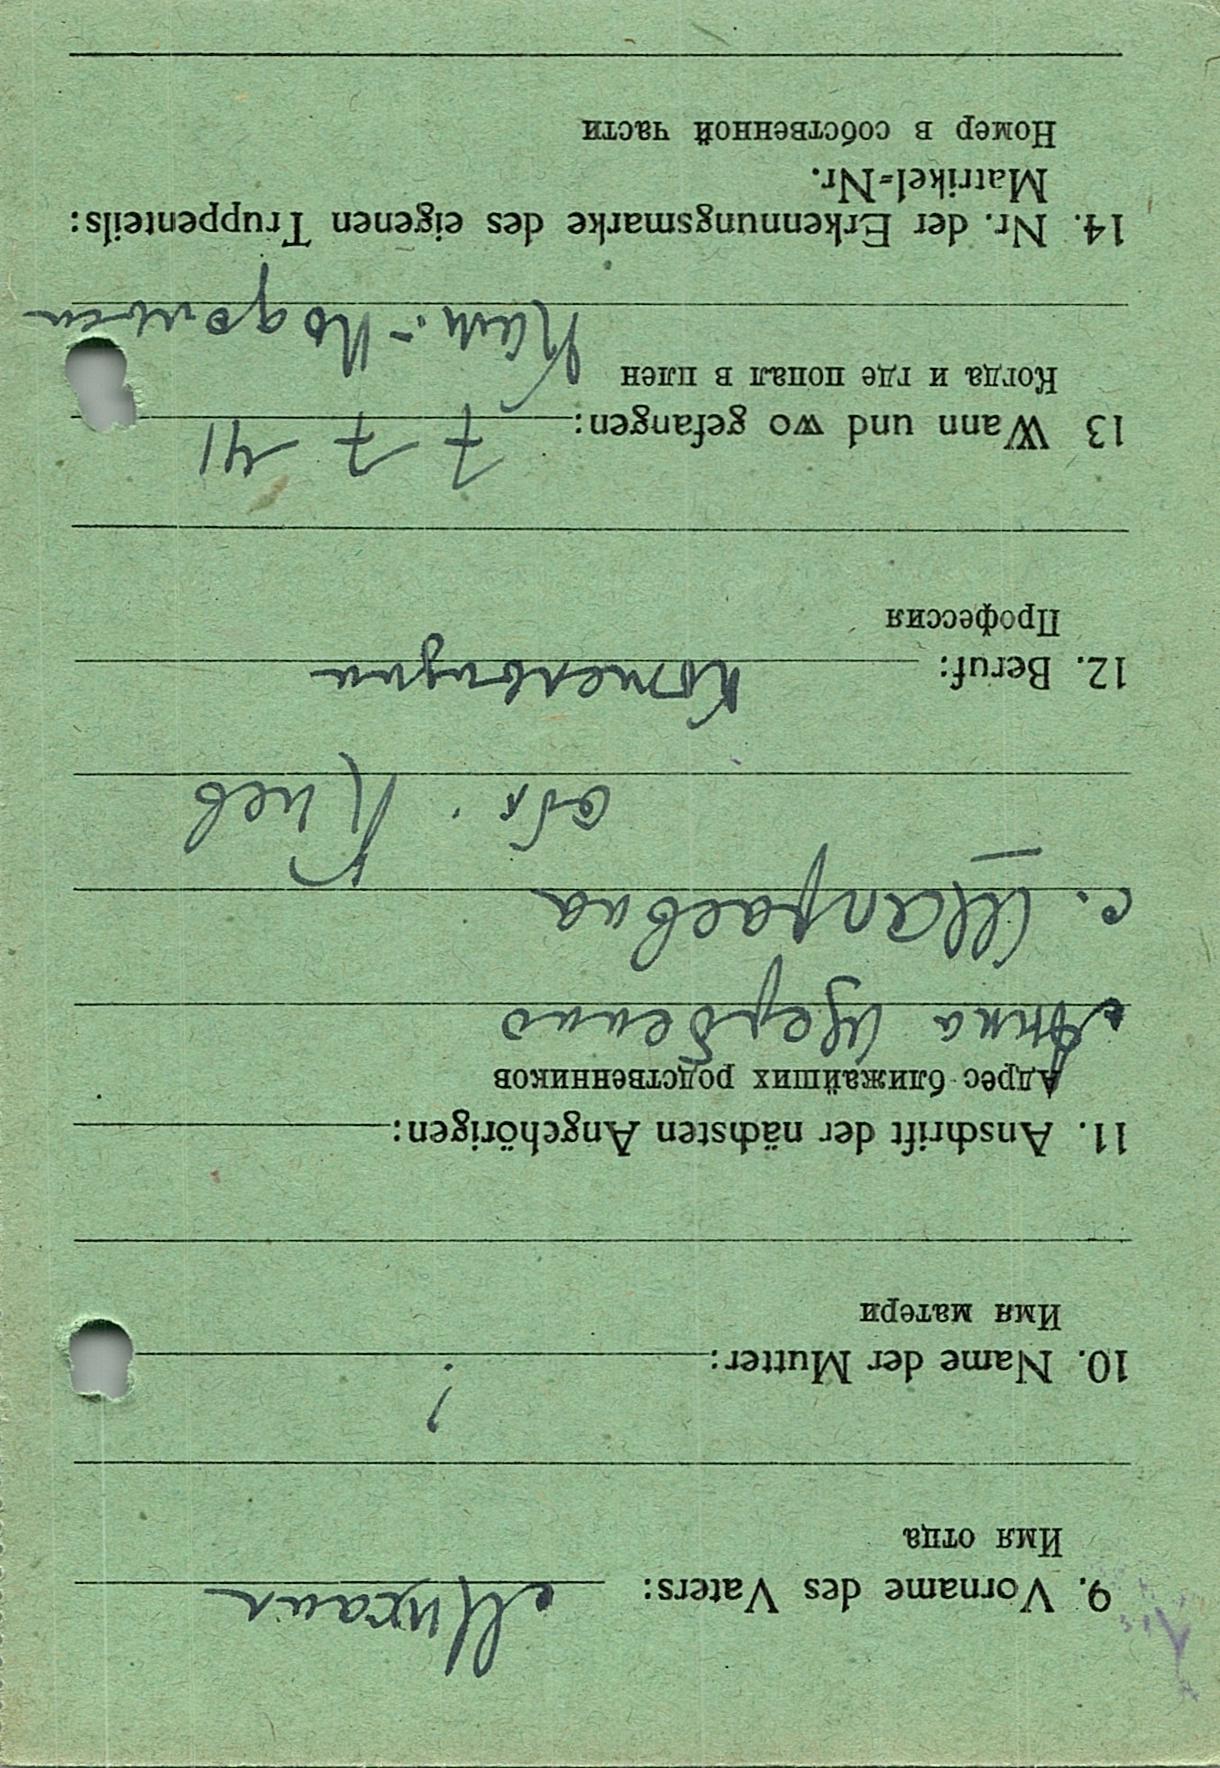 9. Vorname des Vaters: Михаил
Имя отца
10. Name der Mutter: ?
Имя матери
11. Anschrift der nächsten Angehörigen:
Адрес ближайших родственников
Анна Щербенко
с.
обл. Киев
12. Beruf:
Профессия
13 Wann und wo gefangen: 7 7 41
Когда и где попал в плен
Кам.-Подольск
14. Nr. der Erkennungsmarke des eigenen Truppenteils:
Matrikel=Nr.
Номер в собственной части